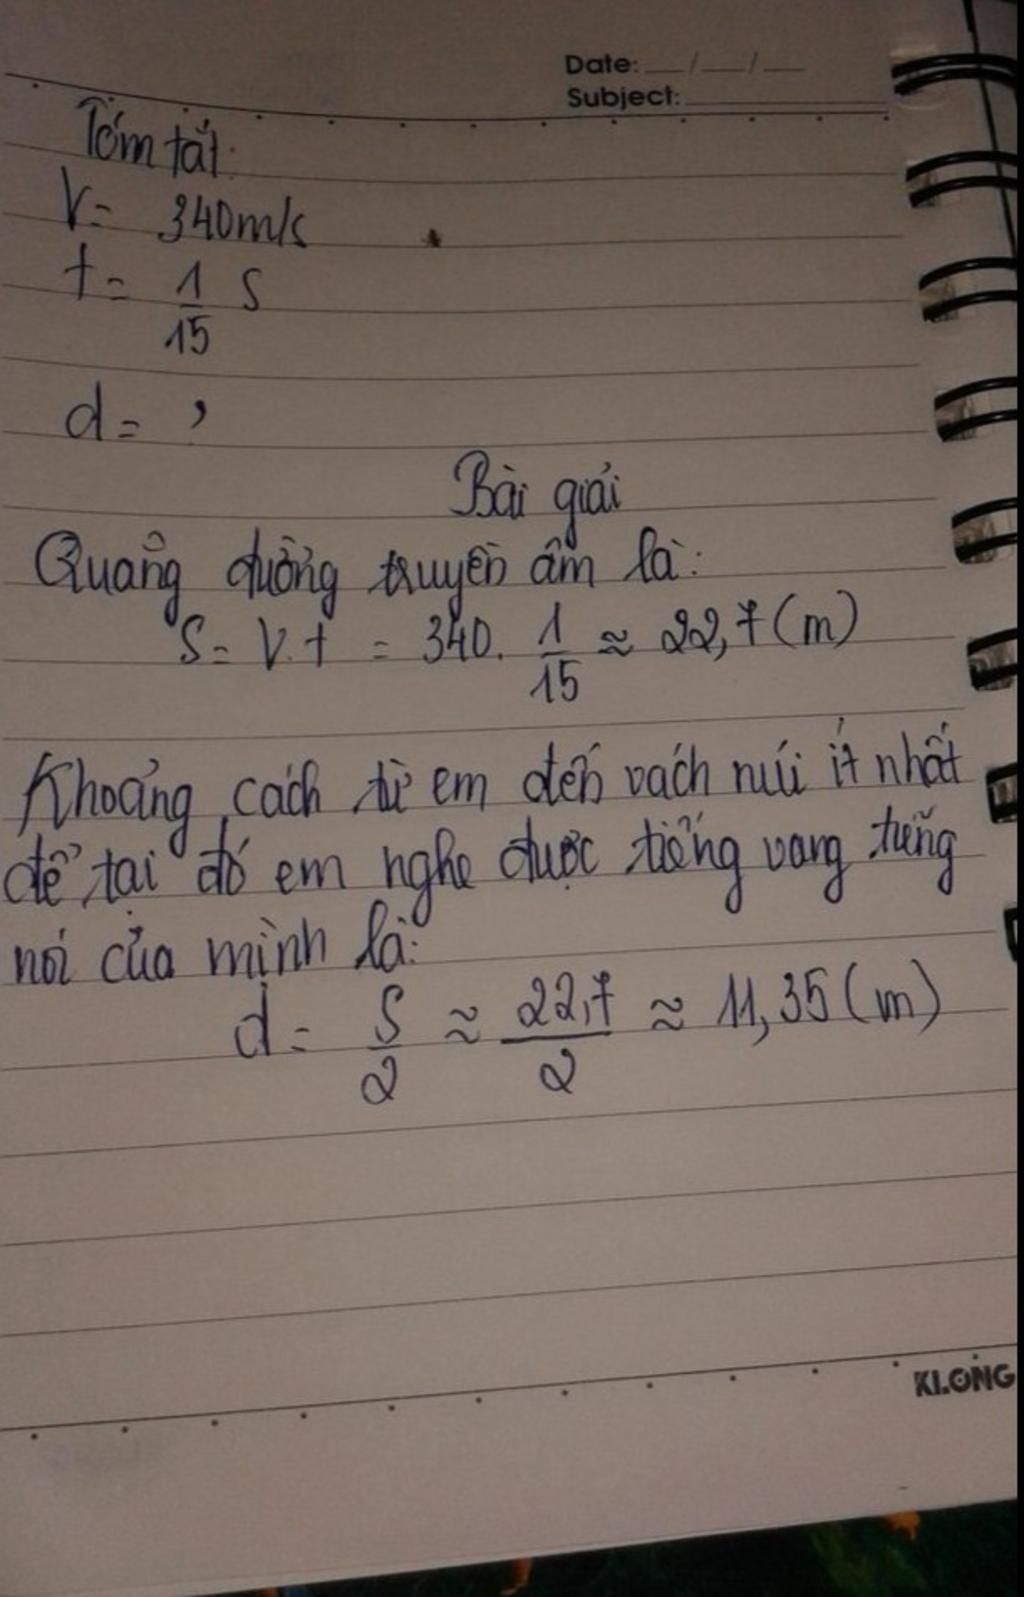 Date: __/__/__
Subject:
Tóm tắt:
V= 340m/s
t= 1/15 s
d= ?
Bài giải
Quãng đường truyền âm là:
S= V.t = 340. 1/15 ≈ 22,7(m)
Khoảng cách từ em đến vách núi ít nhất
để tại đó em nghe được tiếng vang tiếng
nói của mình là:
d= S/2 ≈ 22,7/2 ≈ 11,35(m)
KLONG